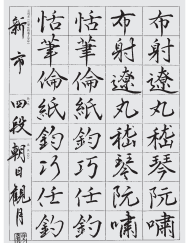 布射遼丸嵇琴阮嘯
布射遼丸嵇琴阮嘯
恬筆倫紙鈞巧任釣
恬筆倫紙鈞巧任釣
新市 四段 朝日観月